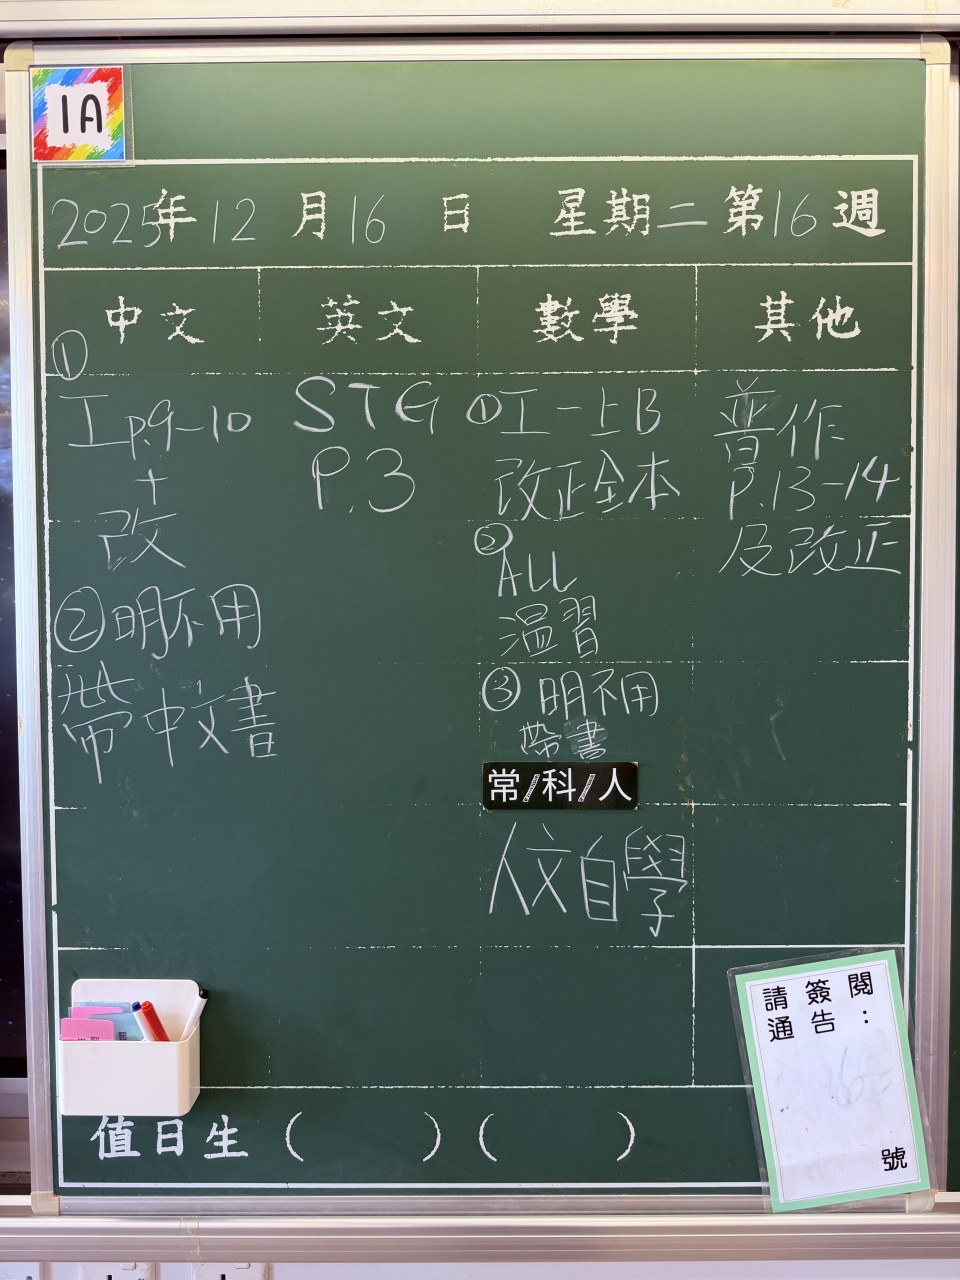 1A
2025年12月16日 星期二 第16週
中文 英文 數學 其他
①
工p.9-10
+
改
②明不用
帶中文書
STG
P.3
①工一上B
改正全本
②
ALL
溫習
③明不用
帶書
常/科/人
人文自學
普作
P.13-14
及改正
請簽閱
通告：
號
值日生（ ）（ ）